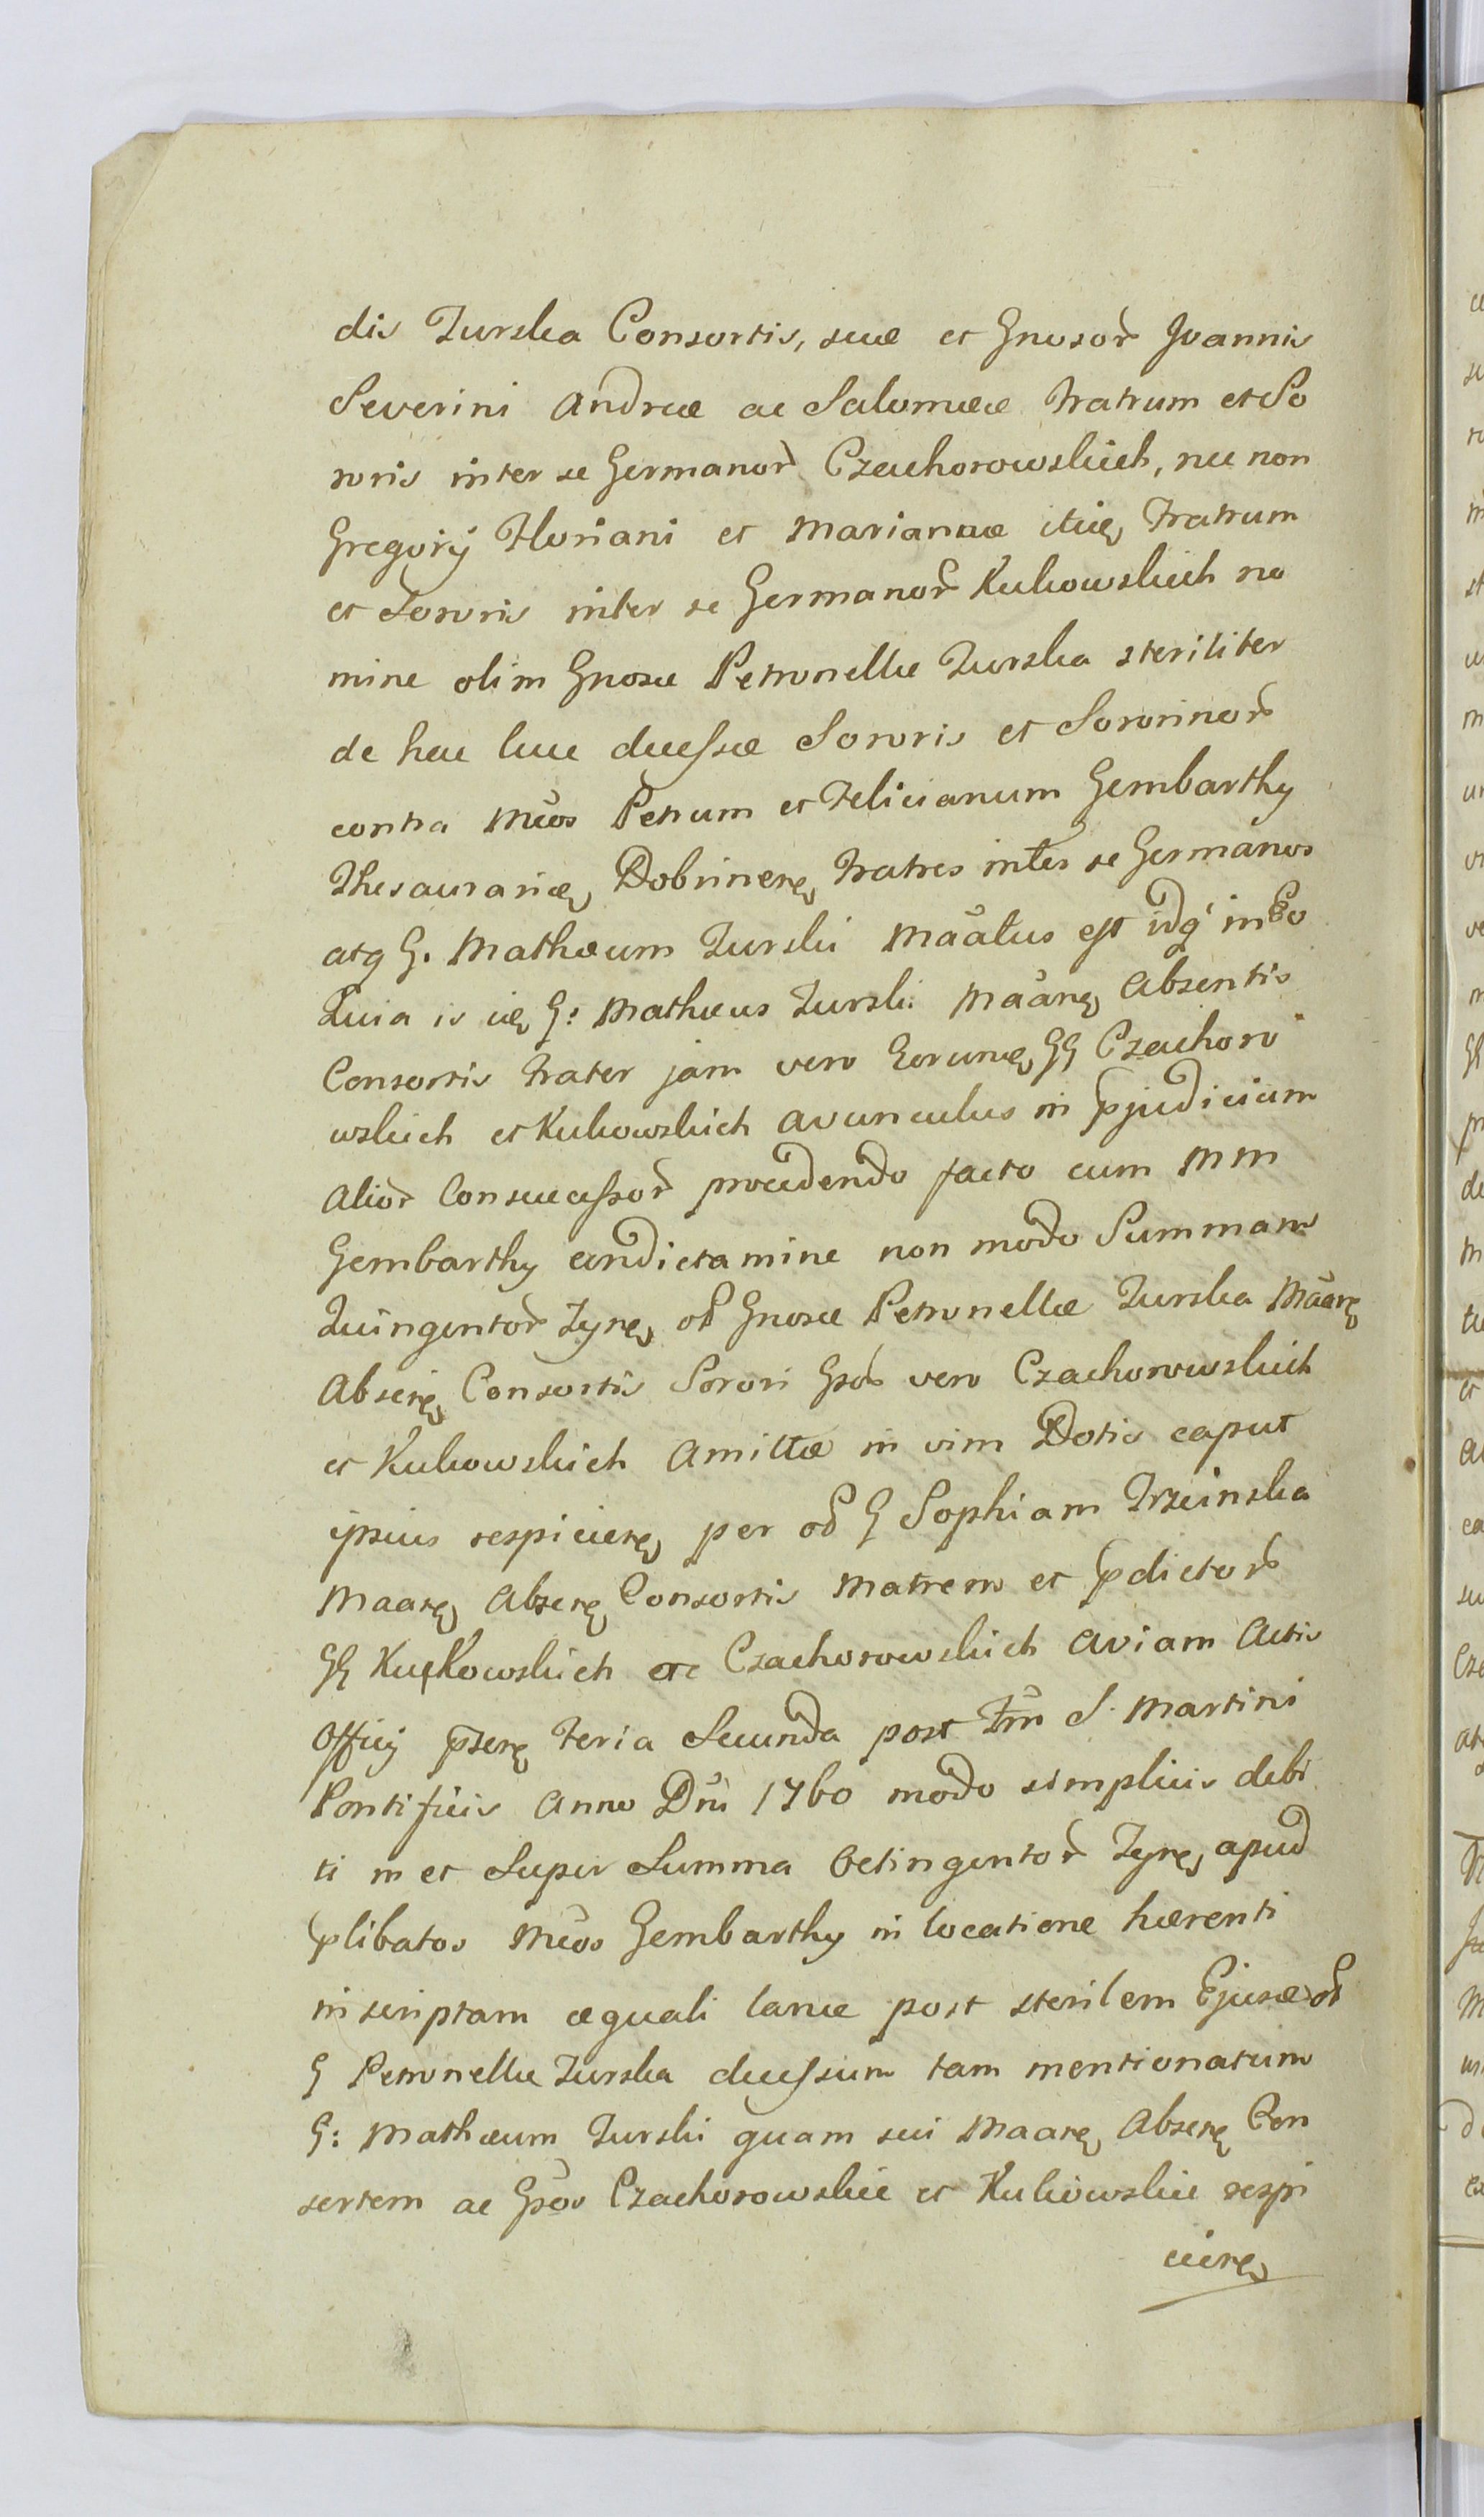 dis Turska Consortis, suæ et Gnosor̃ Joannis
Severini Andreæ ac Salomeæ Fratrum et So
roris inter se Germanor̃ Czachorowskich, nec non
Gregorij Floriani et Mariannæ itię Fratrum
et Sororis inter se Germanor̃ Kukowskich no
mine olim Gnosæ Petronellæ Turska steriliter
de hac luce decessæ Sororis et Sororinor̃
contra Mcos Petrum et Felicianum Gembarthy
Thesaurarię Dobrinenę Fratres inter se Germanos
atq G. Mathæum Turski Maatus est idq in Eo
Quia is ię G: Mathæus Turski Maanę Absentis
Consortis Frater jam vero Eorunę GG Czachoro
wskich et Kukowskich avunculus in pjudicium
Alior̃ Consuccessor̃ procedendo facto cum MM
Gembarthy condictamine non modo Summam
Quingentor̃ Tynę ol Gnosæ Petronellæ Turska Maarę
Absenę Consortis Sorori Gsos vero Czachorowskich
et Kukowskich Amittæ in vim Dotis caput
ipsius respicienę per ol G Sophiam Trzcinska
Maarę Absenę Consortis Matrem et pdictor̃
GG Kukowskich ac Czachorowskich Aviam Actis
Officij psenę Feria Secunda post Fm S. Martini
Pontificis Anno Dni 1760 modo simplicis debi
ti in et super Summa Octingentor̃ Tynę apud
plibatos Mcos Gembarthy in locatione hærenti
inscriptam æquali lance post sterilem Ejusæ ol
G Petronellæ Turska decessum tam mentionatum
G: Mathæum Turski quam sui Maarę Absenę Con
sortem ac Gsos Czachorowskie et Kukowskie respi
cienę